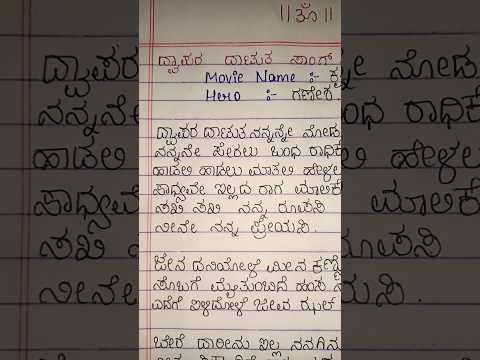 ||ಓಂ||
ದ್ವಾಪರ ದಾಟುತ ಸಾಂಗ್
Movie Name :-
Hero :- ಗಣೇಶ.
ದ್ವಾಪರ ದಾಟುತ ನನ್ನನ್ನೇ ನೋಡ
ನನ್ನನೇ ಸೇರಲು ಬಂಧ ರಾಧಿಕೆ
ಹಾಡಲಿ ಹಾಡಲು ಮಾತಲಿ ಹೇಳಲ
ಸಾಧ್ಯವೇ ಇಲ್ಲದ ರಾಗ ಮಾಲಿಕೆ
ಸಖಿ ಸಖಿ ನನ್ನ ರೂಪಸಿ
ನೀನೇ ನನ್ನ ಪ್ರೇಯಸಿ.
ಜೇನ ದನಿಯೋಳೆ ಮೀನ
ಸೊಬಗೆ ಮೈತುಂಬಿದೆ ಹಂಸ
ಎದೆಗೆ ಇಳಿದೋಳೆ ಜೀವ ಝಲ್
ಬೇರೆ ದಾರೀನು ಇಲ್ಲ ನನಗಿನ